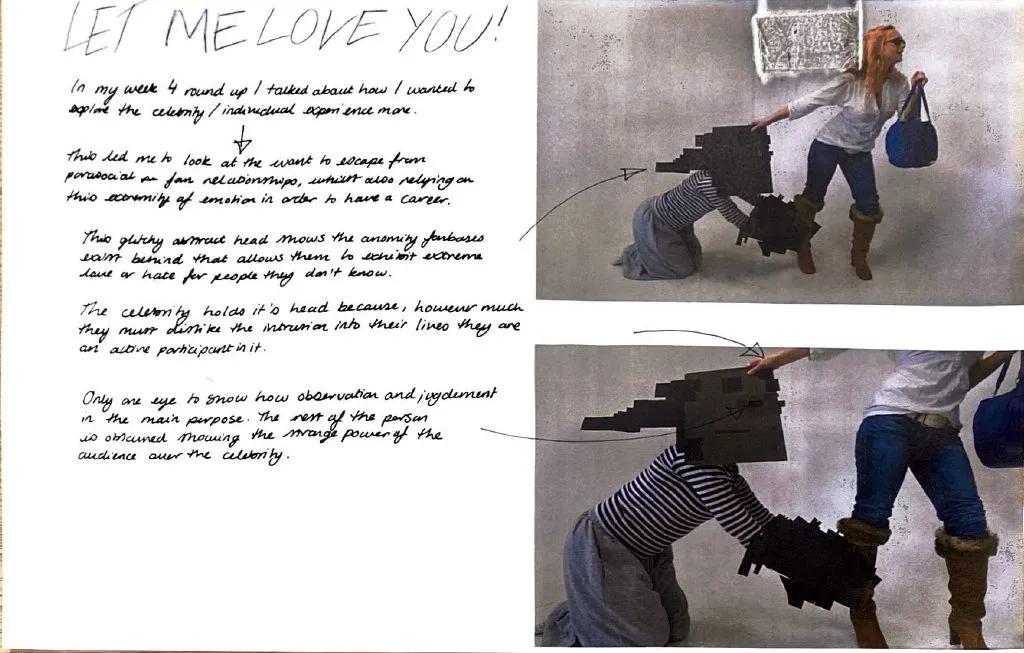 LET ME LOVE YOU!
In my week 4 round up I talked about how I wanted to
explore the celebrity / individual experience more.
This led me to look at the want to escape from
parasocial fan relationships, whilst also relying on
this extremity of emotion in order to have a career.
This glitchy abstract head shows the anomity fanbases
exist behind that allows them to exhibit extreme
love or hate for people they don't know.
The celebrity holds it's head because, however much
they must dislike the intrusion into their lives they are
an active participant in it.
Only one eye to show how observation and jugdement
in the main purpose. The rest of the person
is obscured showing the strange power of the
audience over the celebrity.